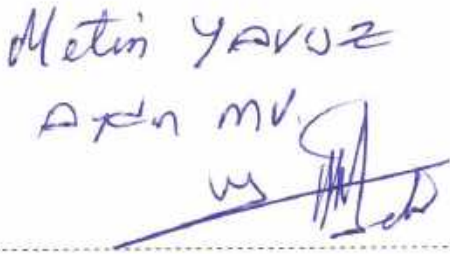 Metin YAVUZ
Aydın MV.